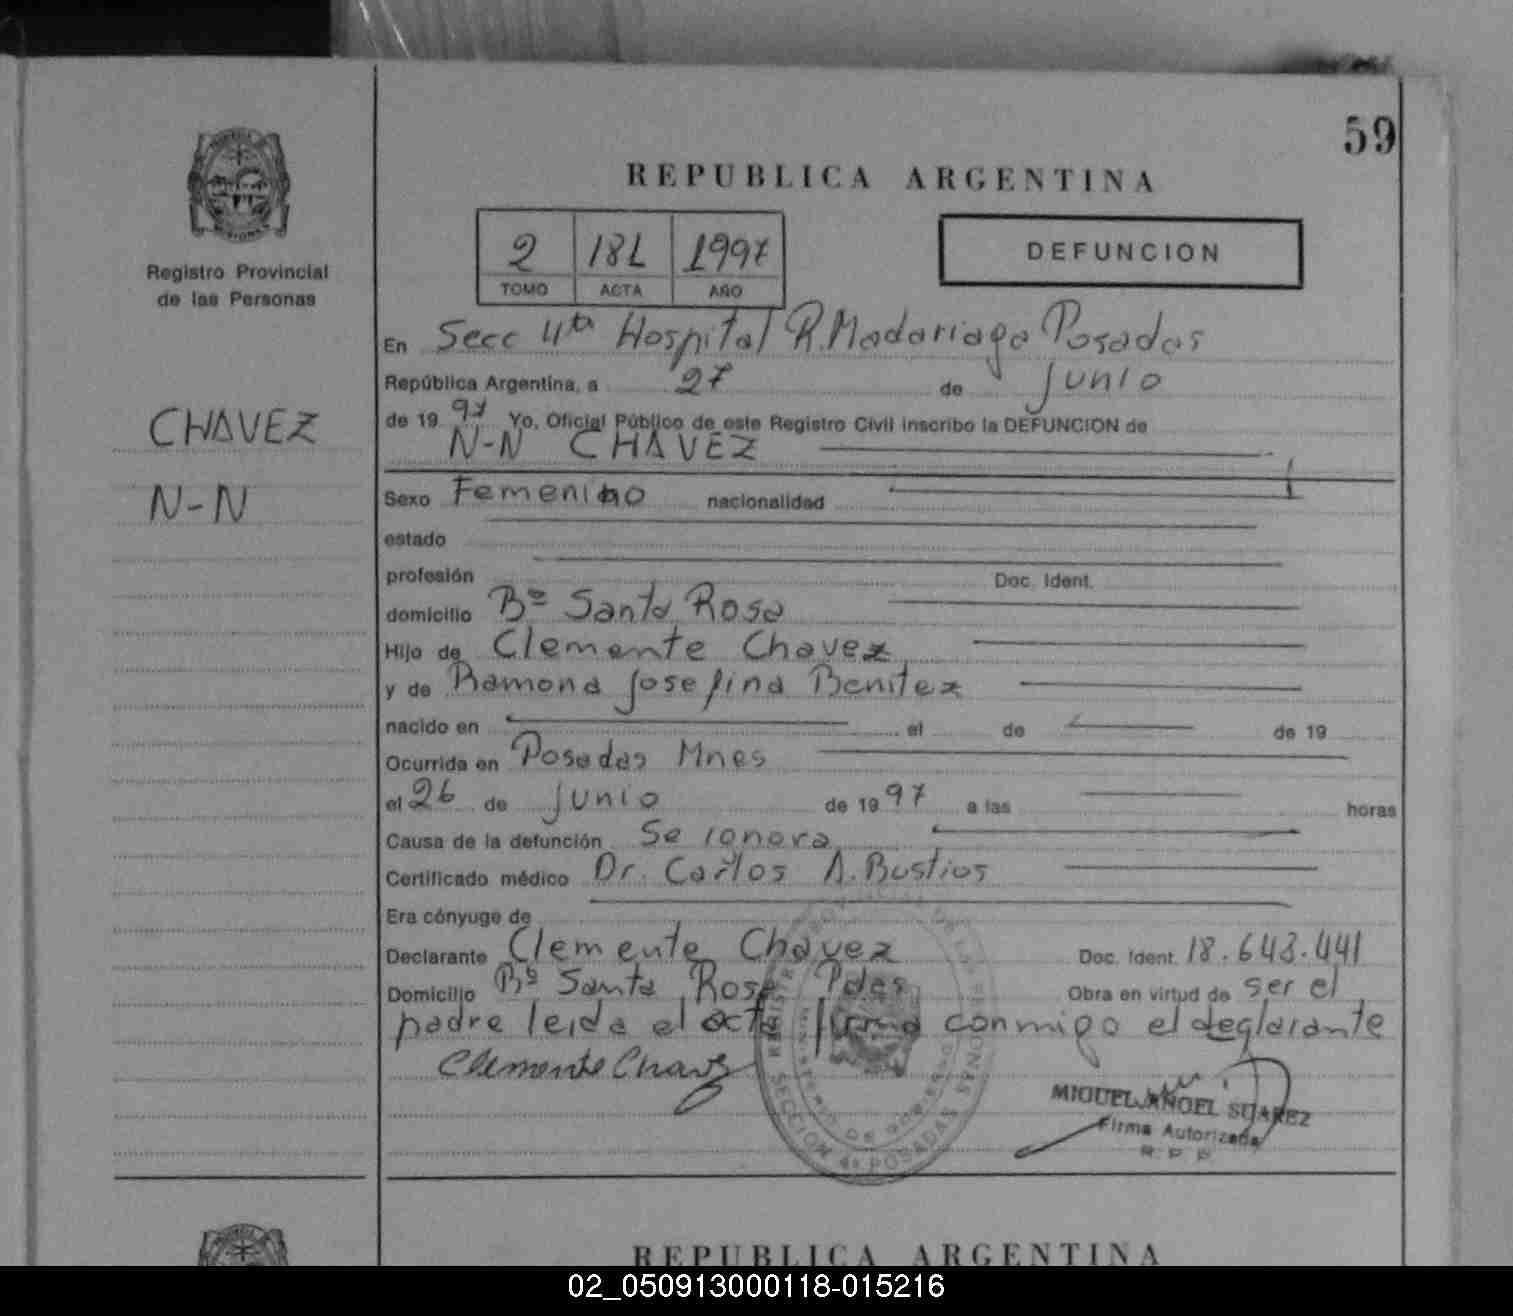 59
REPUBLICA ARGENTINA
Registro Provincial
de las Personas
CHAVEZ
N-N
2 18L 1997
TOMO ACTA AÑO
DEFUNCION
En Secc 4ta Hospital R. Madariaga Posadas
República Argentina, a 27 de Junio
de 19 97 Yo, Oficial Público de este Registro Civil inscribo la DEFUNCION de
N-N CHAVEZ
Sexo Femenino nacionalidad
estado
profesión Doc. Ident.
domicilio Bº Santa Rosa
Hijo de Clemente Chavez
y de Ramona Josefina Benitez
nacido en el de de 19
Ocurrida en Posadas Mnes
el 26 de Junio de 19 97 a las horas
Causa de la defunción Se ignora
Certificado médico Dr. Carlos A. Bustios
Era cónyuge de
Declarante Clemente Chavez Doc. Ident. 18.643.441
Domicilio Bº Santa Rosa Pdas Obra en virtud de ser el
padre leida el acta firma conmigo el declarante
Clemente Chavez
MIGUEL ANGEL SUAREZ
Firma Autorizada
R. P. P.
REPUBLICA ARGENTINA
02_050913000118-015216